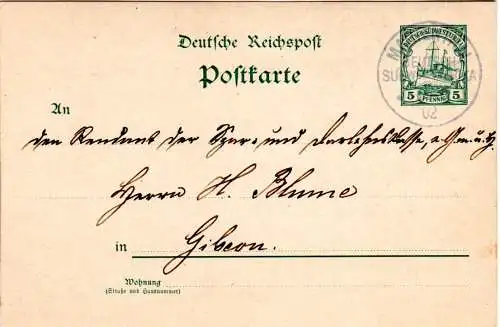 Deutsche Reichspost
Postkarte
DEUTSCH-SÜDWESTAFRIKA
5 PFENNIG 5
02
An
den Rendant der Spar- und Darlehnskasse, e. G. m. u. H.
Herrn H. Blume
in Gibeon.
Wohnung
(Straße und Hausnummer)